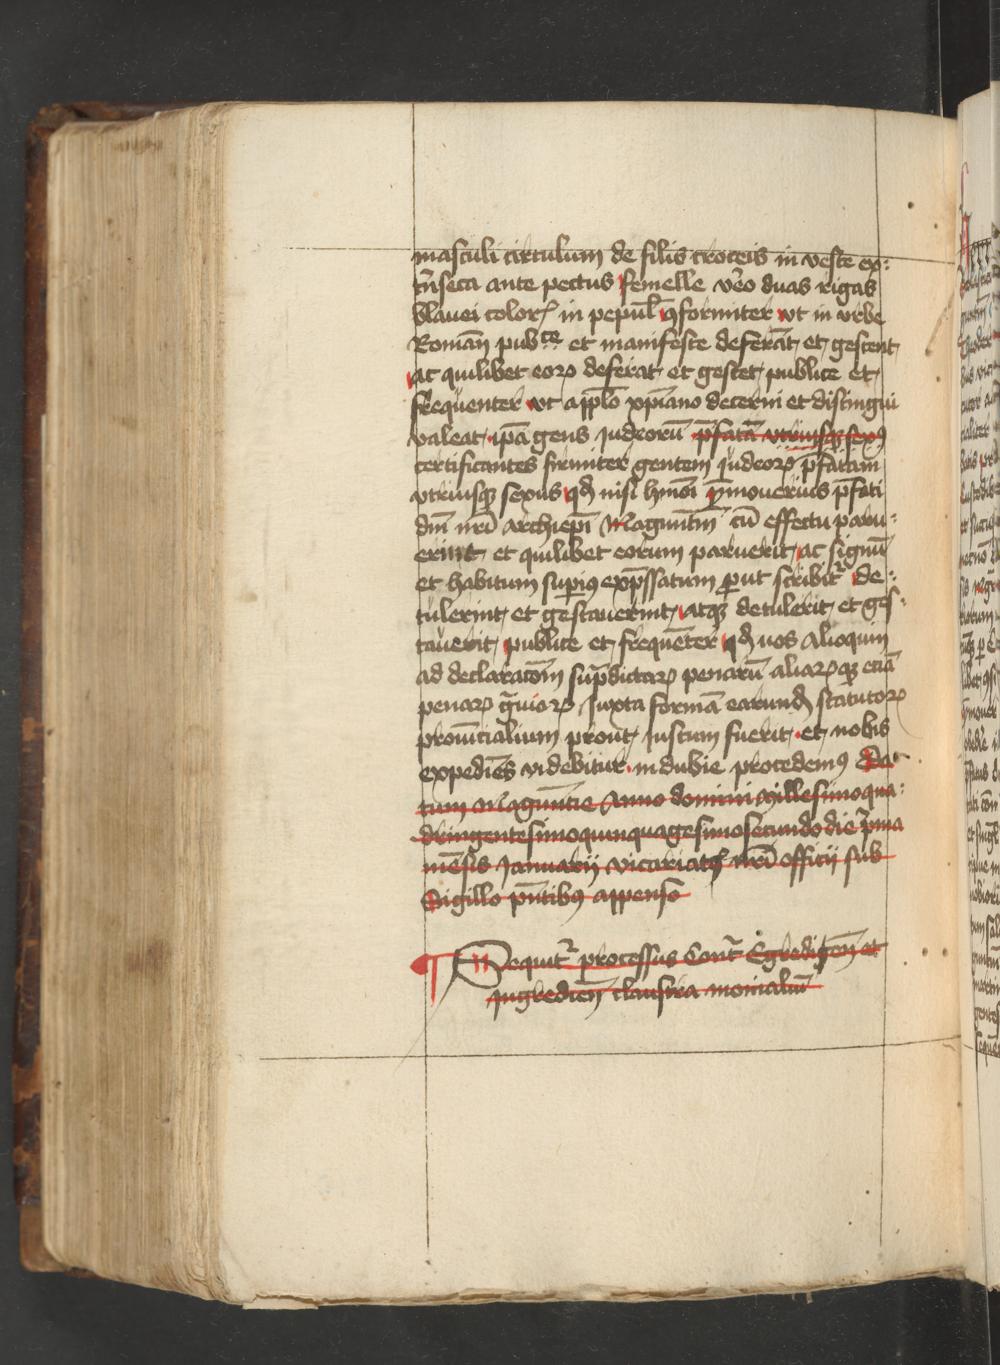 masculi circulum de filis croceis in veste ex:
t̄nseca ante pectus femelle v̄o duas rigas
blauei colorꝭ in pepul̄ ꝯformiter vt in vrbe
Roman̄ pub^ce et manifeste deferāt et gestent
ac quilibet eoꝝ deferat et gestet publice et
frequenter vt a pplō xp̄iano decerni et distingui
valeat ip̄a gens Judeorū p̄fatā vtriusqꝫ sexꝰ
certificantes firmiter gentem Judeoꝝ p̄fatam
vtriusqꝫ sexus qđ nisi hmōi p̄mouerius p̄fati
dn̄i nr̄i archiepī Magunt̄m cū effectu paru:
erint et quilibet eorum paruerit ac signū
et habitum suꝑiꝰ exp̄ssatum ꝓut scribit᷑ de:
tulerint et gestauerint atqꝫ detulerit et ges:
tauerit publice et frequēter qđ nos alioquin
ad declarac̄om sup̄dictaꝝ penarū aliaꝝqꝫ eciā
penaꝝ g̃uioꝝ Juxta formā earunđ statutoꝝ
prouīcialium prout Justum fuerit et nobis
expediēs videbitur indubie procedemꝰ Da
tum Magunt̄ie Anno domini Millesimoqua:
dringentesimoquinquagesimosecundo die p̄ma
mēsis Januarij vicariatꝰ nr̄i officij sub
Sigillo p̄ntibꝰ appenso
¶ Sequit᷑ processus Cont᷑ Egredien̄ et
Jngredien̄ claustra monialiū